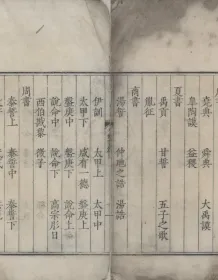 堯典 舜典 大禹謨
皐陶謨 益稷
夏書
禹貢 甘誓 五子之歌
胤征
商書
湯誓 仲虺之誥 湯誥
伊訓 太甲上 太甲中
太甲下 咸有一德 盤庚上
盤庚中 盤庚下 說命上
說命中 說命下 高宗肜日
西伯戡黎 微子
周書
泰誓上 泰誓中 泰誓下